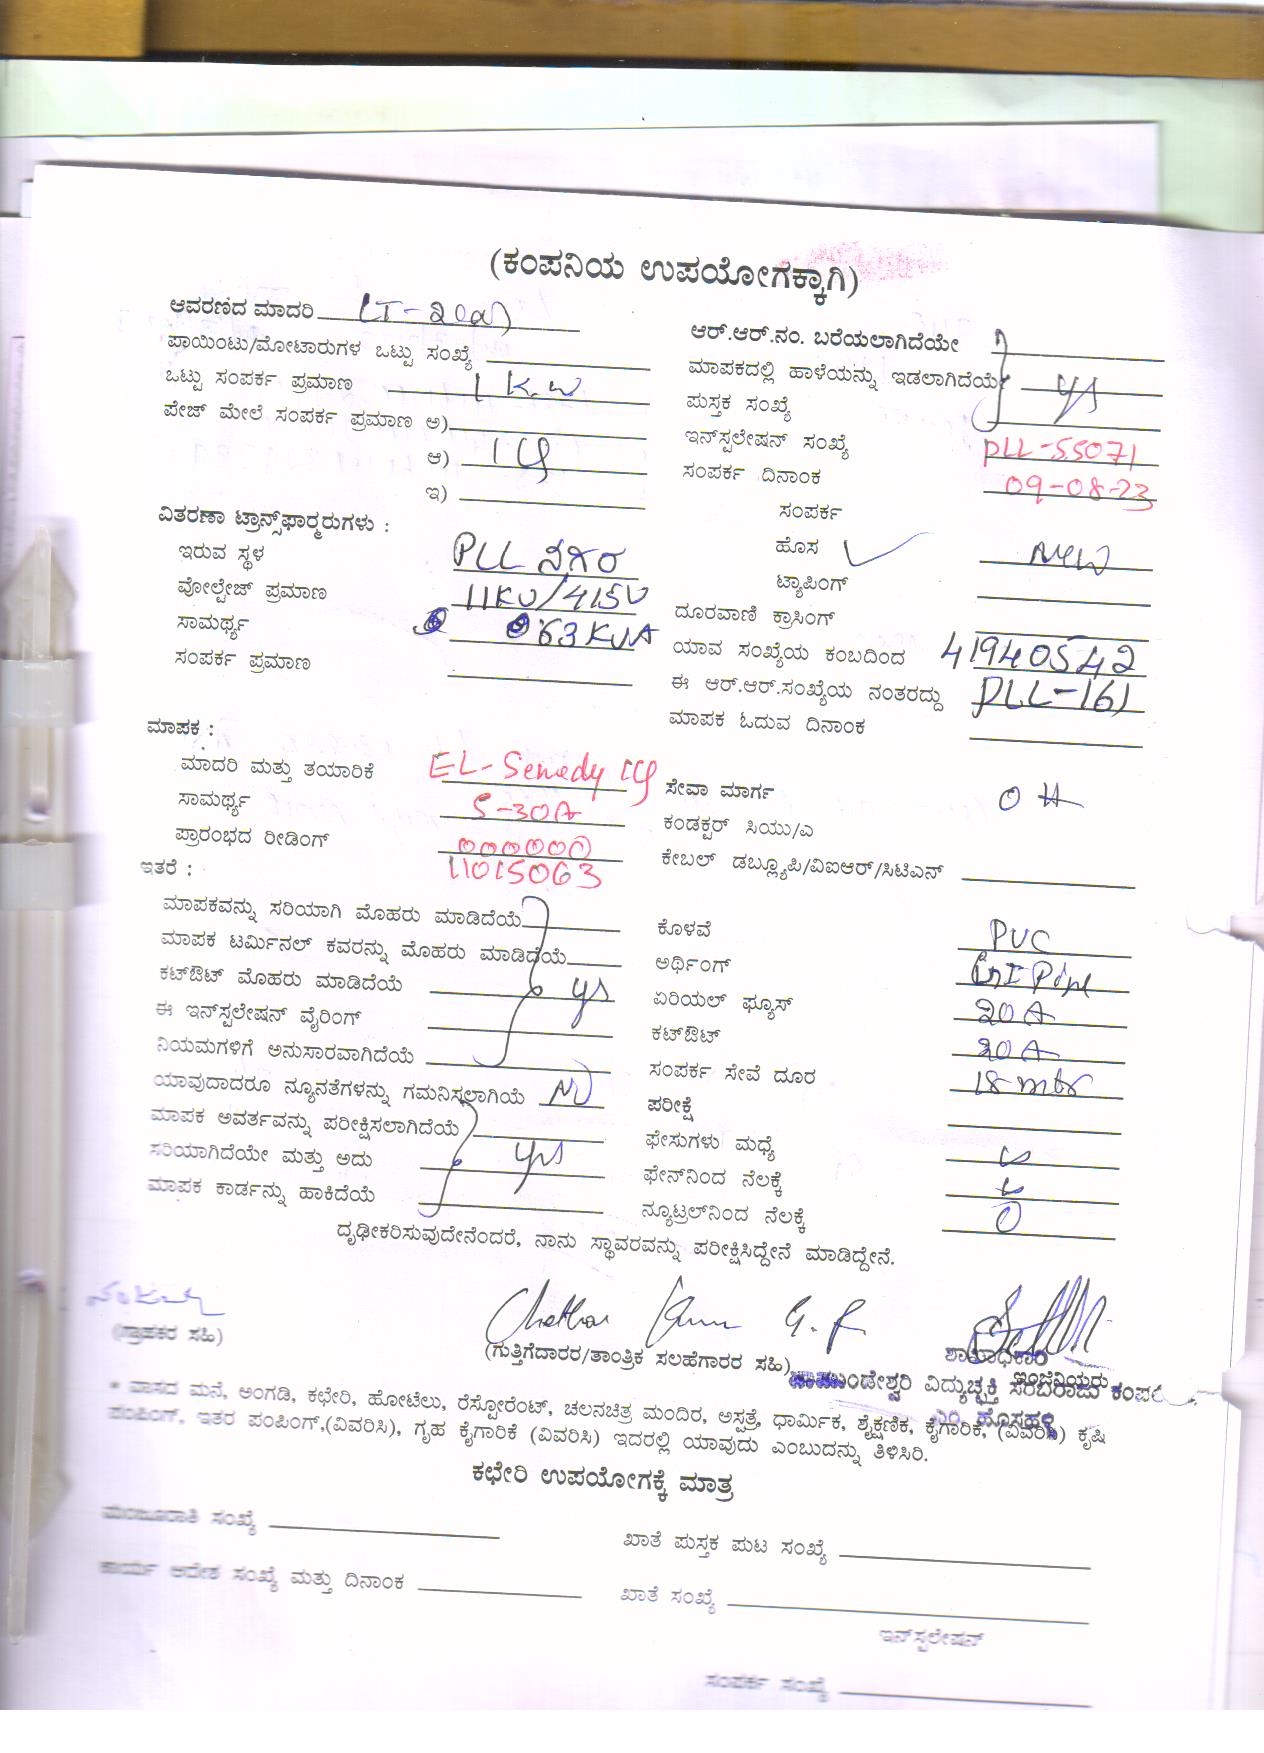 (ಕಂಪನಿಯ ಉಪಯೋಗಕ್ಕಾಗಿ)
ಆವರಣದ ಮಾದರಿ LT-2(a)
ಪಾಯಿಂಟು/ಮೋಟಾರುಗಳ ಒಟ್ಟು ಸಂಖ್ಯೆ
ಒಟ್ಟು ಸಂಪರ್ಕ ಪ್ರಮಾಣ 1 K.W
ಪೇಜ್ ಮೇಲೆ ಸಂಪರ್ಕ ಪ್ರಮಾಣ ಅ)
ಆ)
ಇ)
ವಿತರಣಾ ಟ್ರಾನ್ಸ್‌ಫಾರ್ಮರುಗಳು :
ಇರುವ ಸ್ಥಳ PLL ನಗರ
ವೋಲ್ಟೇಜ್ ಪ್ರಮಾಣ 11KV/415V
ಸಾಮರ್ಥ್ಯ 63 KVA
ಸಂಪರ್ಕ ಪ್ರಮಾಣ
ಮಾಪಕ :
ಮಾದರಿ ಮತ್ತು ತಯಾರಿಕೆ EL-
ಸಾಮರ್ಥ್ಯ 5-30A
ಪ್ರಾರಂಭದ ರೀಡಿಂಗ್ 000000
ಇತರೆ : 11015063
ಮಾಪಕವನ್ನು ಸರಿಯಾಗಿ ಮೊಹರು ಮಾಡಿದೆಯೆ
ಮಾಪಕ ಟರ್ಮಿನಲ್ ಕವರನ್ನು ಮೊಹರು ಮಾಡಿದೆಯೆ
ಕಟ್‌ಔಟ್ ಮೊಹರು ಮಾಡಿದೆಯೆ ys
ಈ ಇನ್‌ಸ್ಪಲೇಷನ್ ವೈರಿಂಗ್
ನಿಯಮಗಳಿಗೆ ಅನುಸಾರವಾಗಿದೆಯೆ
ಯಾವುದಾದರೂ ನ್ಯೂನತೆಗಳನ್ನು ಗಮನಿಸಲಾಗಿಯೆ
ಮಾಪಕ ಅವರ್ತವನ್ನು ಪರೀಕ್ಷಿಸಲಾಗಿದೆಯೆ
ಸರಿಯಾಗಿದೆಯೇ ಮತ್ತು ಅದು yes
ಮಾಪಕ ಕಾರ್ಡನ್ನು ಹಾಕಿದೆಯೆ
ಆರ್.ಆರ್.ನಂ. ಬರೆಯಲಾಗಿದೆಯೇ
ಮಾಪಕದಲ್ಲಿ ಹಾಳೆಯನ್ನು ಇಡಲಾಗಿದೆಯೆ ys
ಪುಸ್ತಕ ಸಂಖ್ಯೆ
ಇನ್‌ಸ್ಪಲೇಷನ್ ಸಂಖ್ಯೆ PLL-55071
ಸಂಪರ್ಕ ದಿನಾಂಕ 09-08-23
ಸಂಪರ್ಕ
ಹೊಸ ✓ new
ಟ್ಯಾಪಿಂಗ್
ದೂರವಾಣಿ ಕ್ರಾಸಿಂಗ್
ಯಾವ ಸಂಖ್ಯೆಯ ಕಂಬದಿಂದ 41940542
ಈ ಆರ್.ಆರ್.ಸಂಖ್ಯೆಯ ನಂತರದ್ದು PLL-161
ಮಾಪಕ ಓದುವ ದಿನಾಂಕ
ಸೇವಾ ಮಾರ್ಗ OH
ಕಂಡಕ್ಟರ್ ಸಿಯು/ಎ
ಕೇಬಲ್ ಡಬ್ಲ್ಯೂಪಿ/ವಿಐಆರ್/ಸಿಟಿಎನ್
ಕೊಳವೆ PVC
ಅರ್ಥಿಂಗ್ GI Pipe
ಏರಿಯಲ್ ಫ್ಯೂಸ್ 20 A
ಕಟ್‌ಔಟ್ 20 A
ಸಂಪರ್ಕ ಸೇವೆ ದೂರ 18 mtr
ಪರೀಕ್ಷೆ
ಫೇಸುಗಳು ಮಧ್ಯೆ
ಫೇನ್‌ನಿಂದ ನೆಲಕ್ಕೆ
ನ್ಯೂಟ್ರಲ್‌ನಿಂದ ನೆಲಕ್ಕೆ 0
ದೃಢೀಕರಿಸುವುದೇನೆಂದರೆ, ನಾನು ಸ್ಥಾವರವನ್ನು ಪರೀಕ್ಷಿಸಿದ್ದೇನೆ ಮಾಡಿದ್ದೇನೆ.
(ಗ್ರಾಹಕರ ಸಹಿ)
Chethan Kumar G. R
(ಗುತ್ತಿಗೆದಾರರ/ತಾಂತ್ರಿಕ ಸಲಹೆಗಾರರ ಸಹಿ)
ಶಾಖಾಧಿಕಾರಿ
ಇಂಜಿನಿಯರು
ವಿದ್ಯುಚ್ಛಕ್ತಿ ಸರಬರಾಜು ಕಂಪನಿ
* ವಾಸದ ಮನೆ, ಅಂಗಡಿ, ಕಛೇರಿ, ಹೋಟೆಲು, ರೆಸ್ಟೋರೆಂಟ್, ಚಲನಚಿತ್ರ ಮಂದಿರ, ಅಸ್ಪತ್ರೆ, ಧಾರ್ಮಿಕ, ಶೈಕ್ಷಣಿಕ, ಕೈಗಾರಿಕೆ, (ವಿವರಿಸಿ) ಕೃಷಿ
ಪಂಪಿಂಗ್, ಇತರ ಪಂಪಿಂಗ್,(ವಿವರಿಸಿ), ಗೃಹ ಕೈಗಾರಿಕೆ (ವಿವರಿಸಿ) ಇದರಲ್ಲಿ ಯಾವುದು ಎಂಬುದನ್ನು ತಿಳಿಸಿರಿ.
ಕಛೇರಿ ಉಪಯೋಗಕ್ಕೆ ಮಾತ್ರ
ಮಂಜೂರಾತಿ ಸಂಖ್ಯೆ
ಖಾತೆ ಪುಸ್ತಕ ಪುಟ ಸಂಖ್ಯೆ
ಕಾರ್ಯ ಆದೇಶ ಸಂಖ್ಯೆ ಮತ್ತು ದಿನಾಂಕ
ಖಾತೆ ಸಂಖ್ಯೆ
ಇನ್‌ಸ್ಪಲೇಷನ್
ಸಂಪರ್ಕ ಸಂಖ್ಯೆ